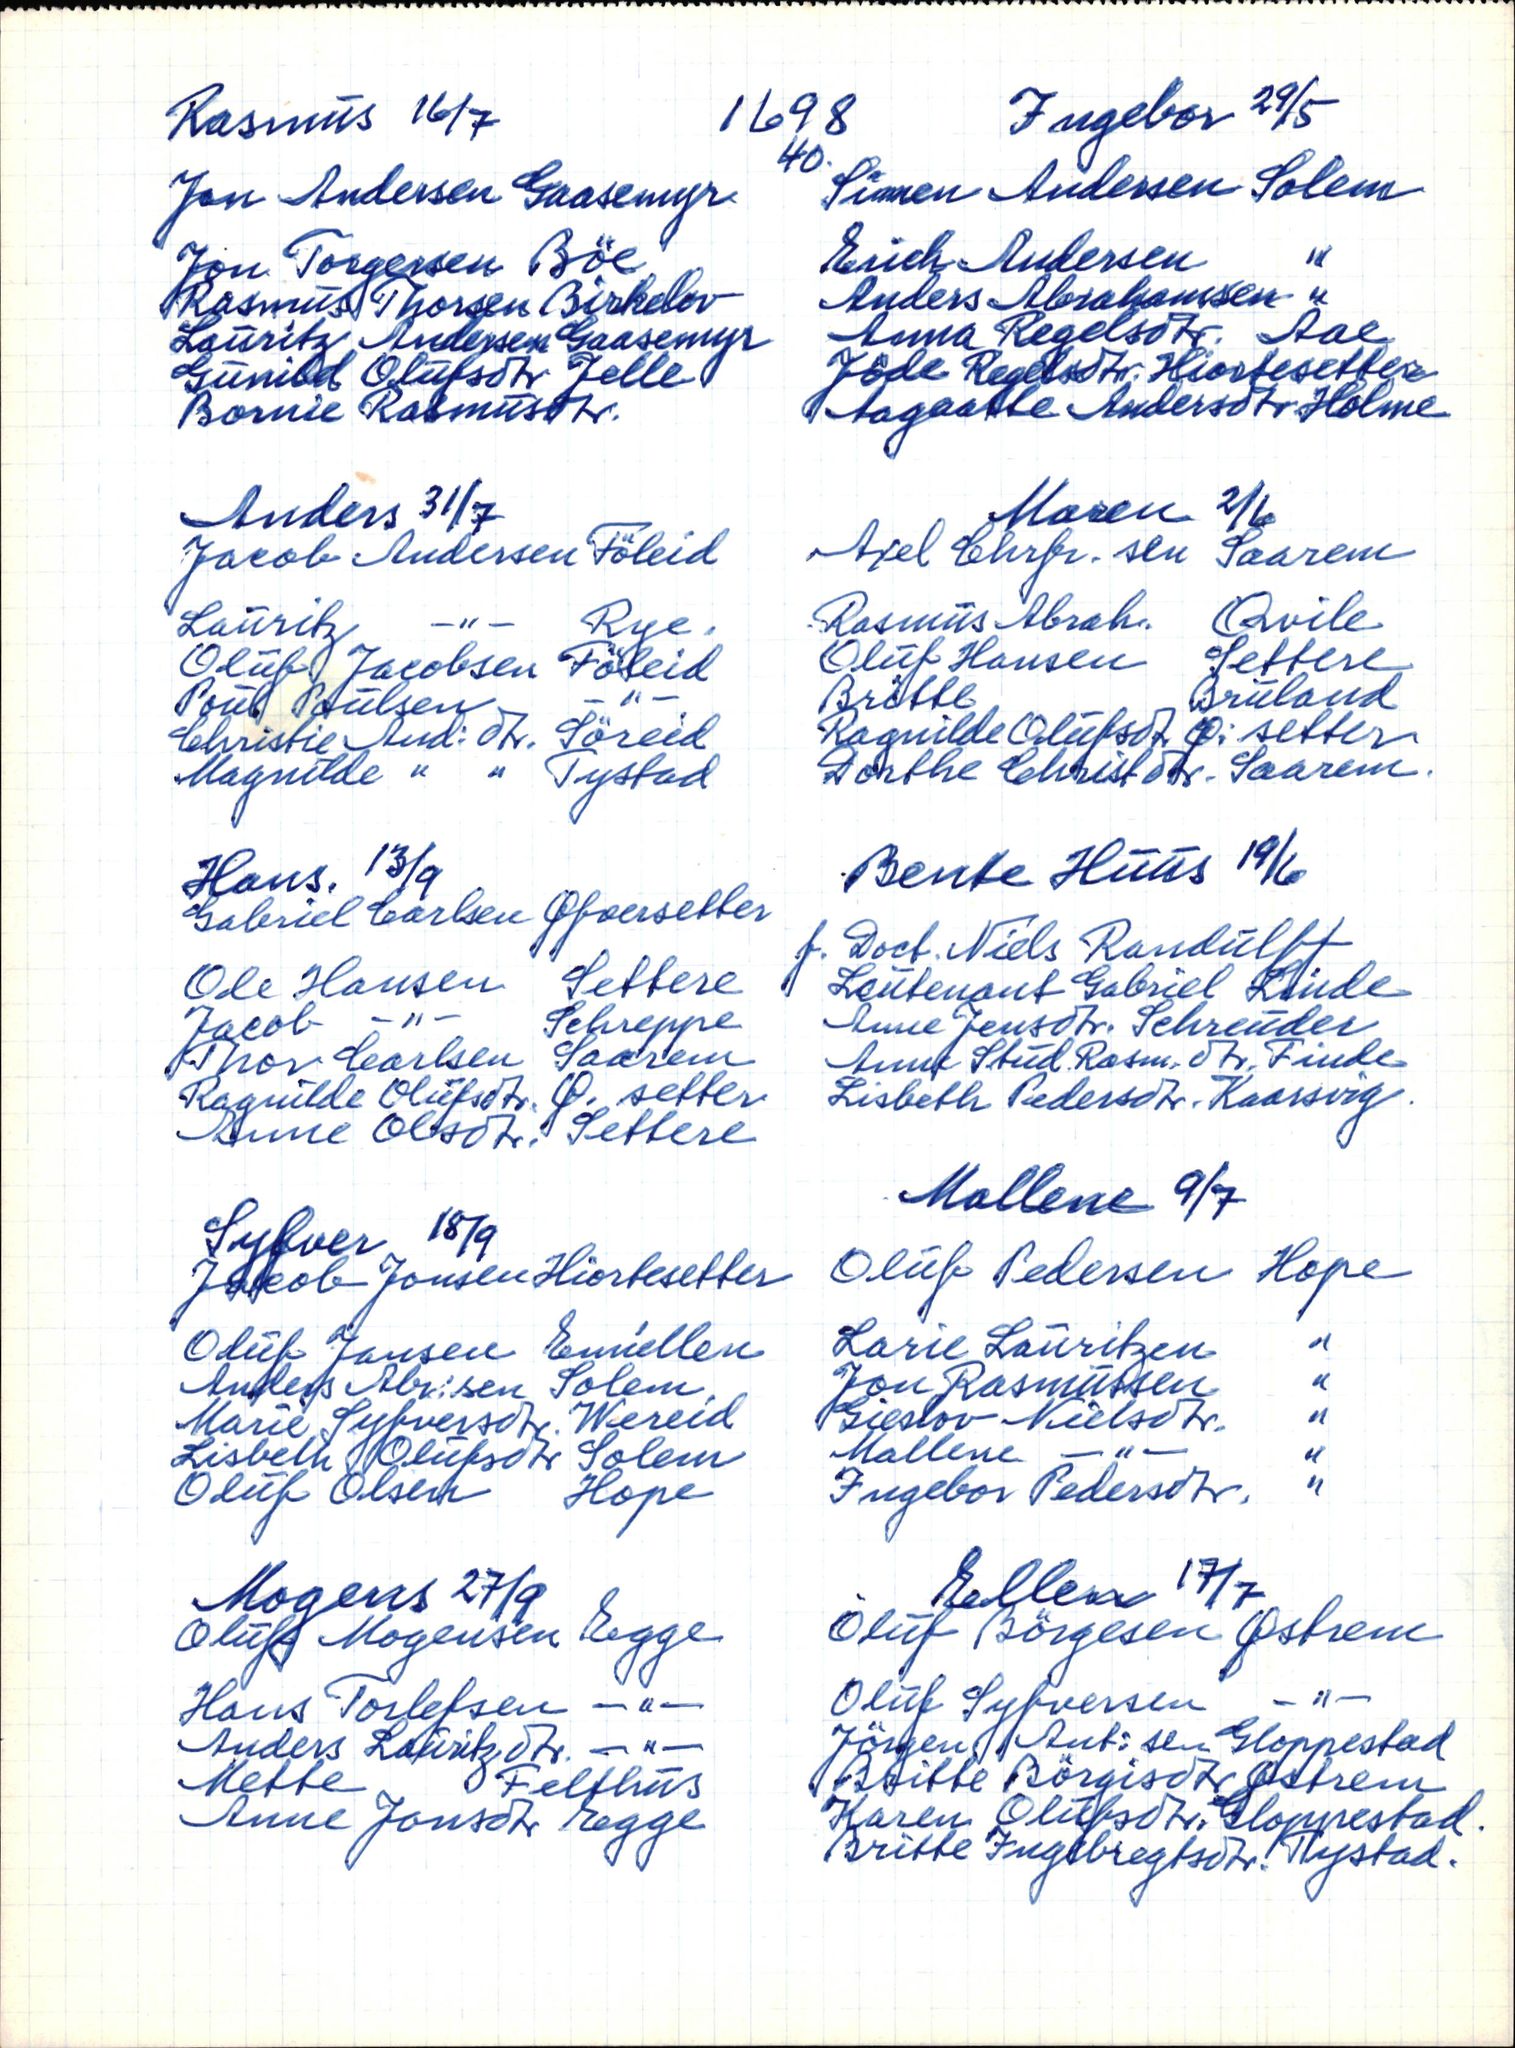 1698
40.
Rasmus 16/7
Jon Andersen Gaasemyr
Jon Torgersen Böe
Rasmus Thorsen Birkelov
Lauritz Andersen Gaasemyr
Gunild Olufsdtr Jelle
Bornie Rasmusdtr.
Anders 31/7
Jacob Andersen Föleid
Lauritz -"- Rye.
Oluf Jacobsen Föleid
Poul Poulsen -"-
Christie And: dtr. Söreid
Magnilde " " Tystad
Hans. 13/9
Gabriel Carlsen Øfversetter
Ole Hansen Settere
Jacob -"- Schreppe
Thor Carlsen Saarem
Ragnilde Olufsdtr. Ø. setter
Anne Olsdtr. Settere
Syfver 18/9
Jacob Jonsen Hiortesetter
Oluf Jansen Emellen
Anders Abr:sen Solem
Marie Syfversdtr. Wereid
Lisbeth Olufsdtr Solem
Oluf Olsen Hope
Mogens 27/9
Oluf Mogensen Egge
Hans Torlefsen -"-
Anders Lauritz.dtr. -"-
Mette Felthus
Anne Jonsdtr Egge
Ingebor 29/5
Simen Andersen Solem
Erich Andersen "
Anders Abrahamsen "
Anna Regelsdtr. Aae
Jöde Regelsdtr. Hiortesettere
Aagaatte Andersdtr Holme
Maren 2/6
Axel Chrfr. sen Saarem
Rasmus Abrah. Qvile
Oluf Hansen Settere
Britte Bruland
Ragnilde Olufsdt Ø: setter
Dorthe Christdtr. Saarem.
Bente Huus 19/6
f. Doct. Niels Randulff
Leutenant Gabriel Linde
Anne Jensdtr. Schreuder
Anne Stud. Rasm. dtr. Finde
Lisbeth Pedersdtr. Kaarsvig.
Mallene 9/7
Oluf Pedersen Hope
Larie Lauritzen "
Jon Rasmussen "
Gieslov Nielsdtr. "
Mallene -"- "
Ingebor Pedersdtr. "
Ellen 17/7
Oluf Börgesen Østrem
Oluf Syfversen -"-
Jörgen Ant: sen Gloppestad
Britte Börgisdtr Østrem
Karen Olufsdtr. Gloppestad.
Britte Ingebregtsdtr. Nystad.